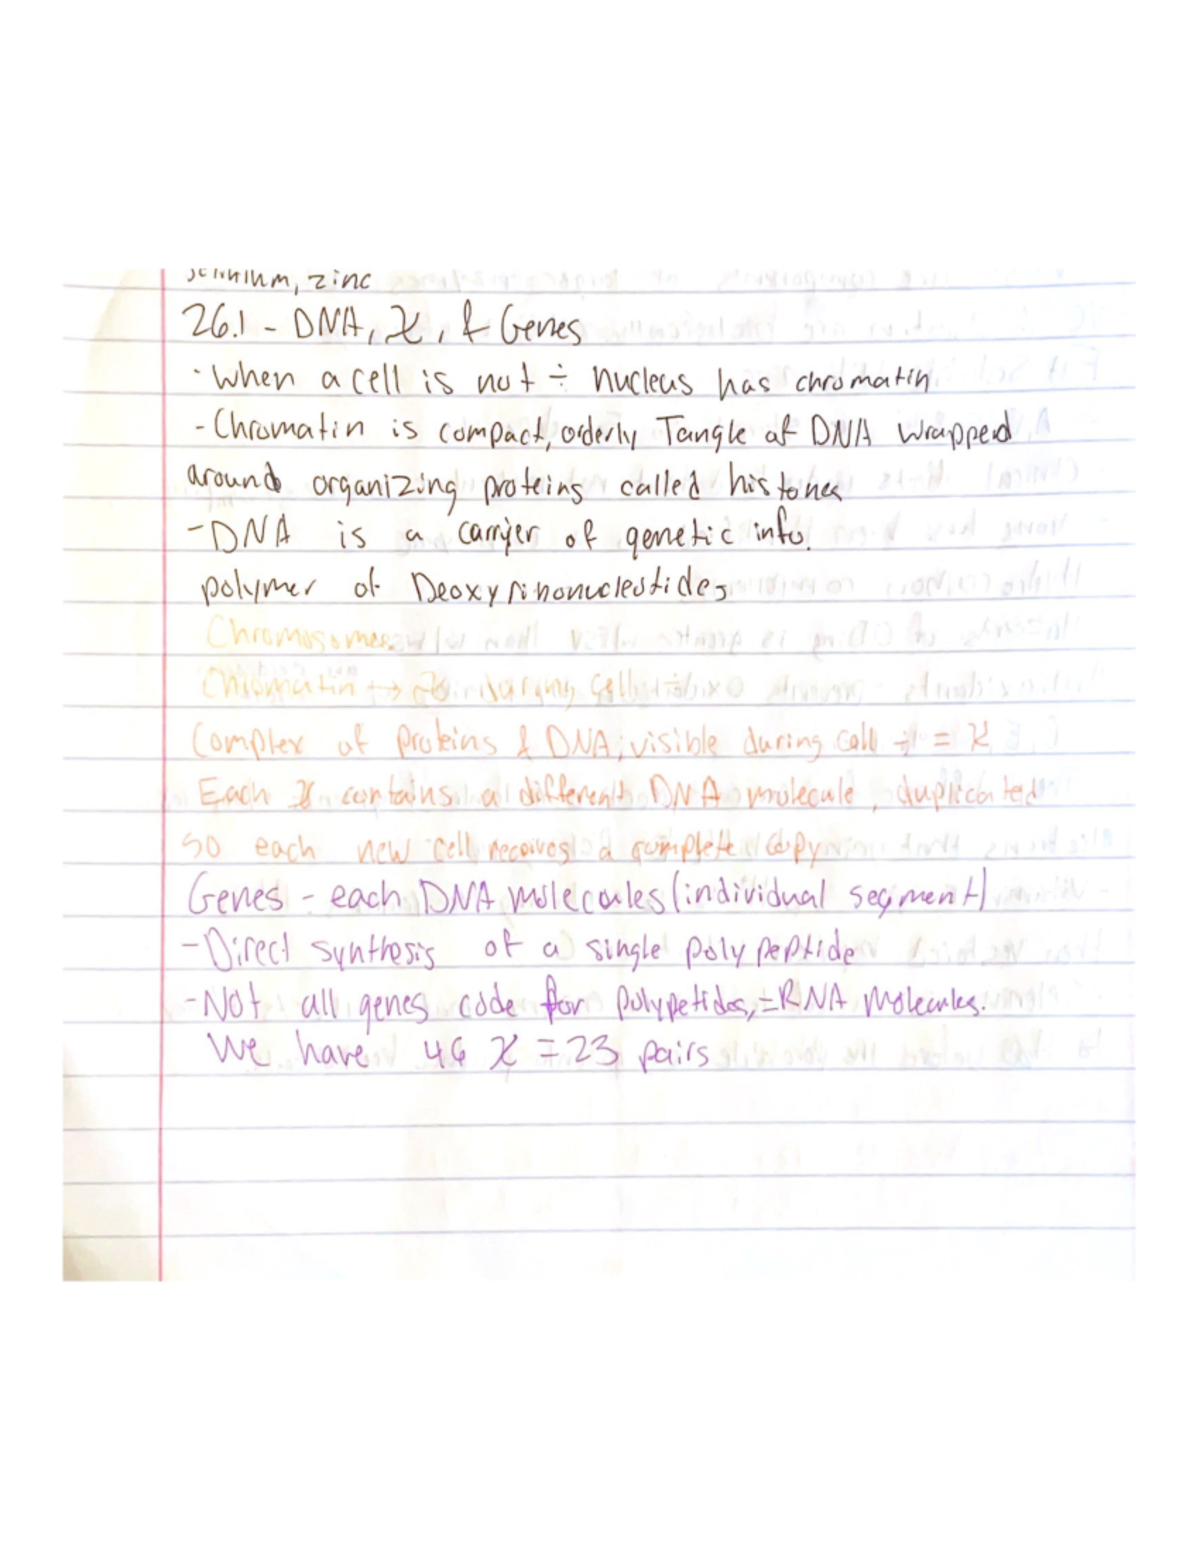 selenium, zinc
26.1 - DNA, X, & Genes
· When a cell is not ÷ nucleus has chromatin
- Chromatin is compact, orderly Tangle of DNA wrapped
around organizing proteins called histones
- DNA is a carrier of genetic info.
polymer of Deoxyrinonucleotides
Chromosomes
Chromatin → X during cell ÷
Complex of proteins & DNA; visible during cell ÷ = X
Each X contains a different DNA molecule, duplicated
so each new cell receives a complete copy
Genes - each DNA molecules (individual segment)
- Direct synthesis of a single polypeptide
- Not all genes code for polypetides, = RNA molecules.
We have 46 X = 23 pairs